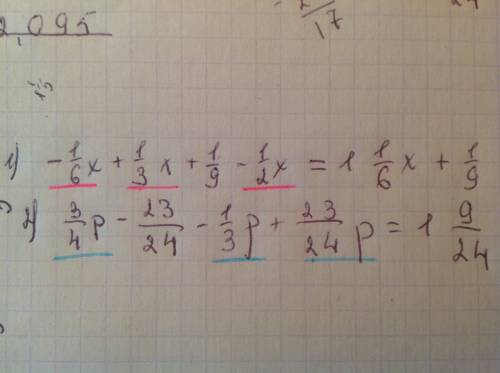 2,095
17
24
1) -1/6x + 1/3x + 1/9 - 1/2x = 1 1/6x + 1/9
2) 3/4p - 23/24 - 1/3p + 23/24p = 1 9/24